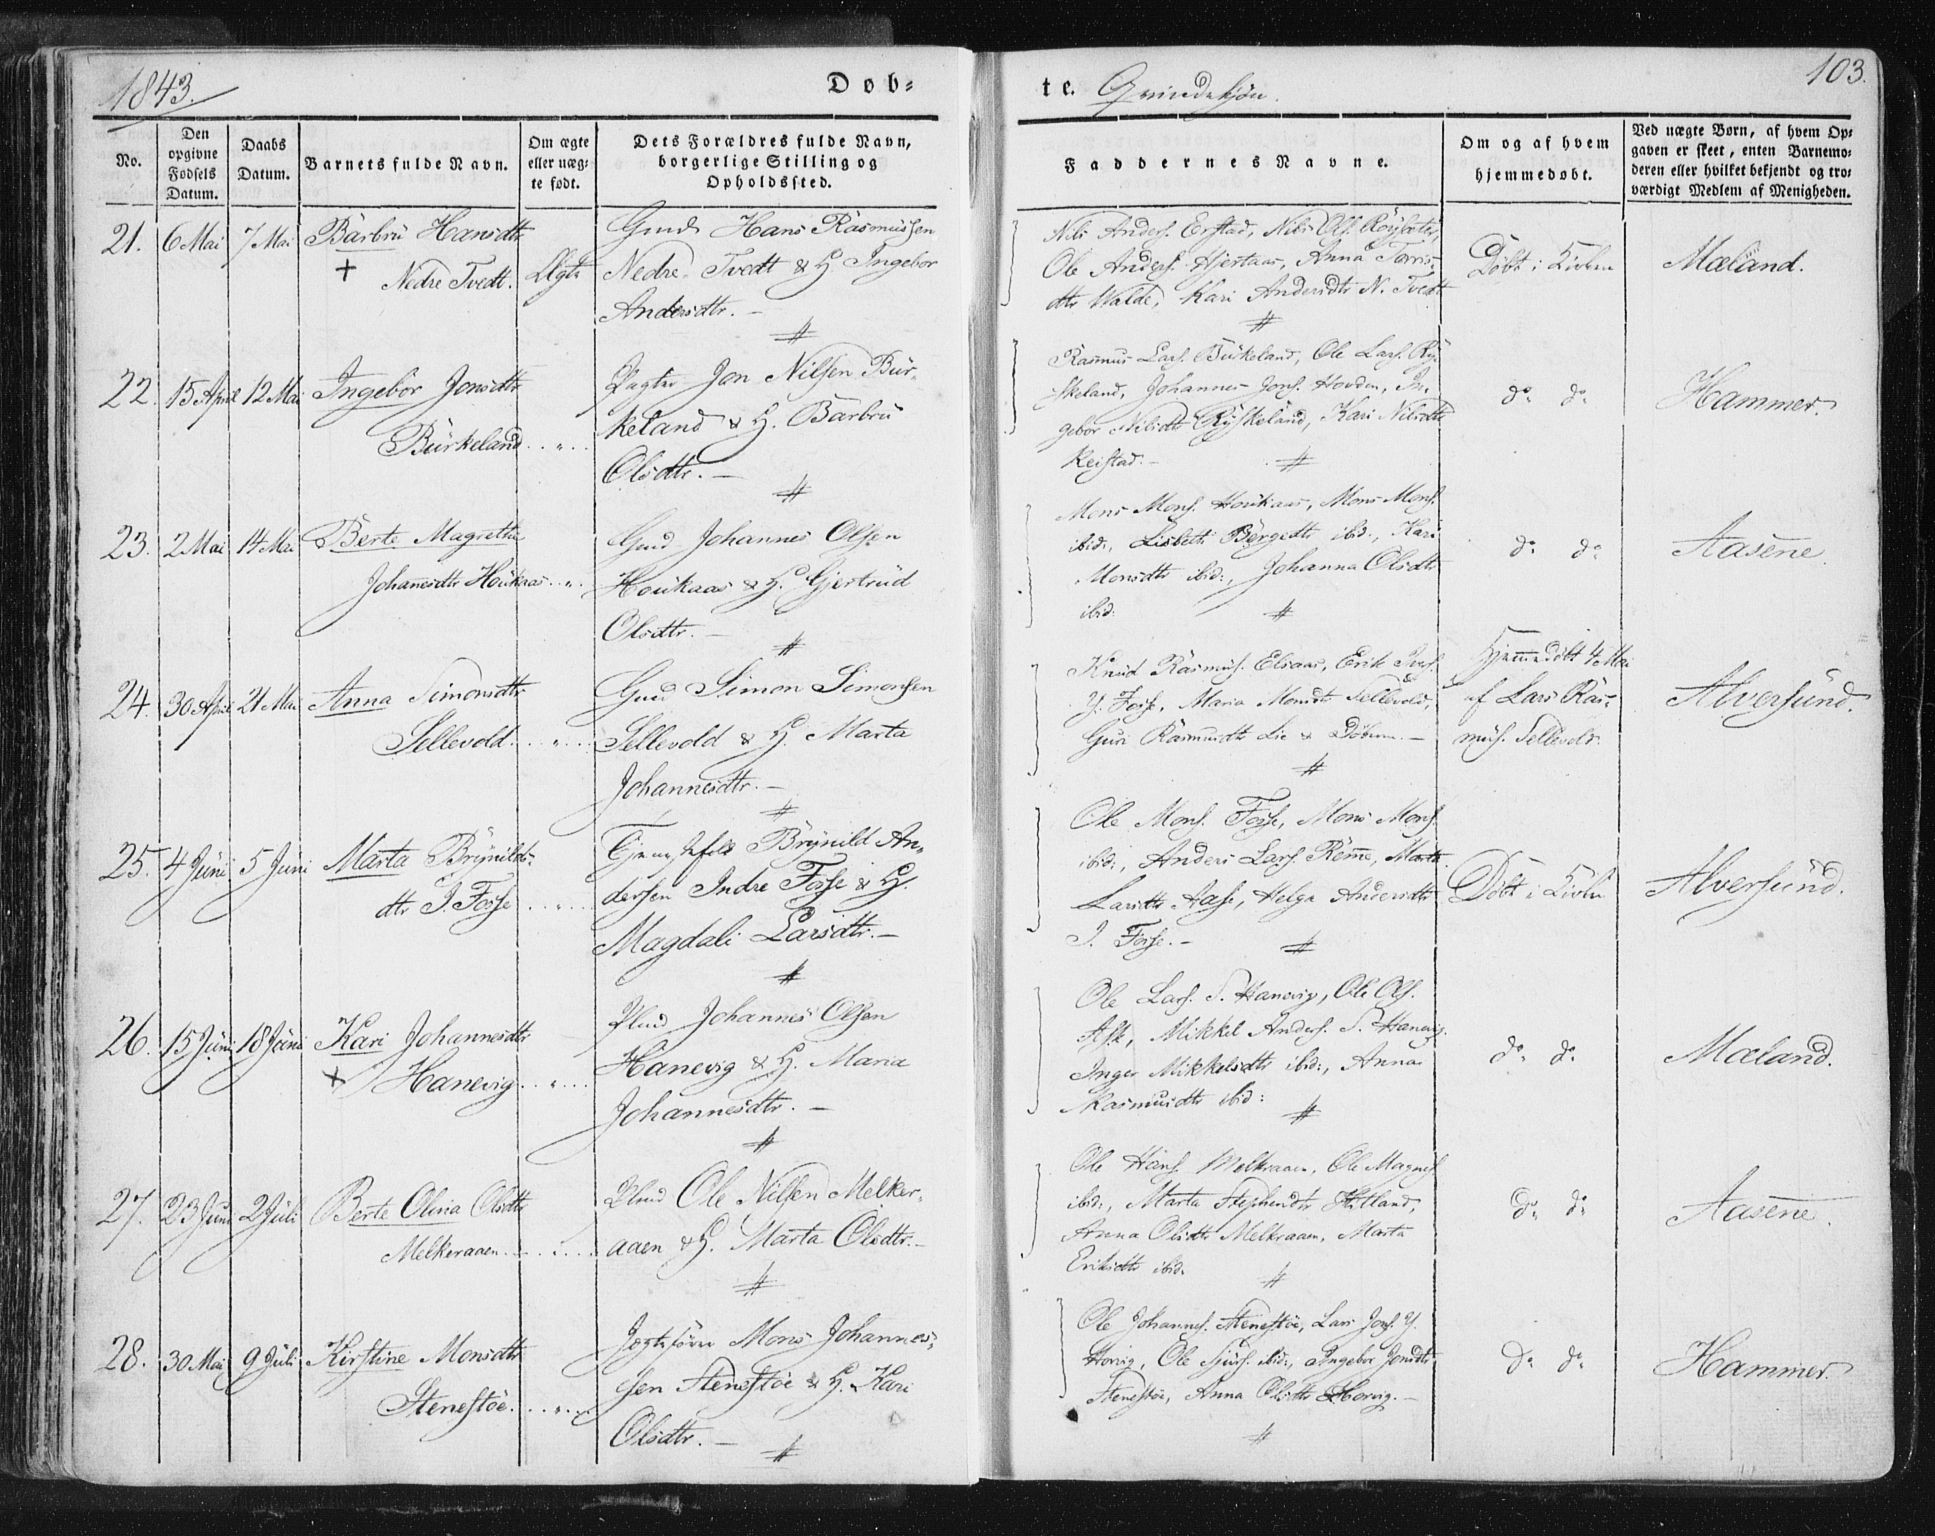 1843.
Døb-
te. Qvindekjøn.
103.
No.
Den opgivne Fødsels Datum.
Daabs Datum.
Barnets fulde Navn.
Om ægte eller uæg-te født.
Dets Forældres fulde Navn, borgerlige Stilling og Opholdssted.
Faddernes Navne.
Om og af hvem hjemmedøbt.
Ved uægte Børn, af hvem Op-
gaven er skeet, enten Barnemo-
deren eller hvilket bekjendt og tro-
værdigt Medlem af Menigheden.
21. 6 Mai 7 Mai Barbru Hansdtr
+ Nedre Tvedt. Ægte
Gmd Hans Rasmussen
Nedre Tvedt & H. Ingebor
Andersdtr. —
Nils Anders. Erstad, Nils Ols. Røysæter,
Ole Anders. Hjertaas, Anna Torris-
dtr Walde, Kari Andersdtr N. Tvedt
Døbt i Kirken
Mæland.
22. 15 April 12 Mai Ingebor Jonsdtr
Burkeland . . " . .
Pagter Jon Nilsen Bur-
keland & H. Barbru
Olsdtr. —
Rasmus Lars. Burkeland, Ole Lars. Ry-
skeland, Johannes Jons. Hovden, In-
gebor Nilsdtr Ryskeland, Kari Nilsdtr
Keistad. —
do do
Hammer.
23. 2 Mai 14 Mai Berte Magrethe
Johanesdtr Houkaas . . " .
Gmd Johannes Olsen
Houkaas & H. Gjertrud
Olsdtr. —
Mons Mons. Houkaas, Mons Mons.
ibid:, Lisbeth Børgesdtr ibid:, Kari
Monsdtr ibid:, Johanna Olsdtr
ibid:
do do
Aasene.
24. 30 April 21 Mai Anna Simonsdtr
Sellevold . . . " . .
Gmd Simon Simonsen
Sellevold & H. Marta
Johannesdtr. —
Knud Rasmus. Eliaas, Erik Ivers.
Y. Fosse, Maria Monsdtr Sellevold,
Guri Rasmusdtr Lie &
Hjemmedøbt 4 Mai
af Lars Ras-
mus. Sellevold.
Alversund.
25. 4 Juni 5 Juni Marta Brynilds-
dtr I. Fosse . . . . .
Brynild An-
dersen Indre Fosse & H.
Magdali Larsdtr. —
Ole Mons. Fosse, Mons Mons.
ibid:, Anders Lars. Rem̄e, Marta
Larsdtr Aase, Helga Andersdtr
I. Fosse. —
Døbt i Kirken
Alversund.
26. 15 Juni 18 Juni Kari Johannesdtr
+ Hanevig . . " . .
Plmd Johannes Olsen
Hanevig & H. Maria
Johannesdtr. —
Ole Lars. S. Hanevig, Ole Ols.
Ask, Mikkel Anders. S. Hanevig
Inger Mikkelsdtr ibid:, Anna
Rasmusdtr ibid:
do do
Mæland.
27. 23 Juni 2 Juli Berte Olina Olsdtr
Melkeraaen . . . . . .
Plmd Ole Nilsen Melker-
aaen & H. Marta Olsdtr. —
Ole Hans. Melkraaen, Ole Magnes.
ibid:, Marta Stephensdtr Hitland,
Anna Olsdtr Melkraaen, Marta
Eriksdtr ibid.
do do
Aasene.
28. 30 Mai 9 Juli Kirstine Monsdtr
Stenestøe. . . . " . .
Jægtefører Mons Johannes-
sen Stenestøe & H. Kari
Olsdtr. —
Ole Johannes. Stenestøe, Lars Jons. Y.
Horvig, Ole Sjurs. ibid:, Ingebor Jonsdtr
Stenestøe, Anna Olsdtr Horvig. —
do do
Hammer.